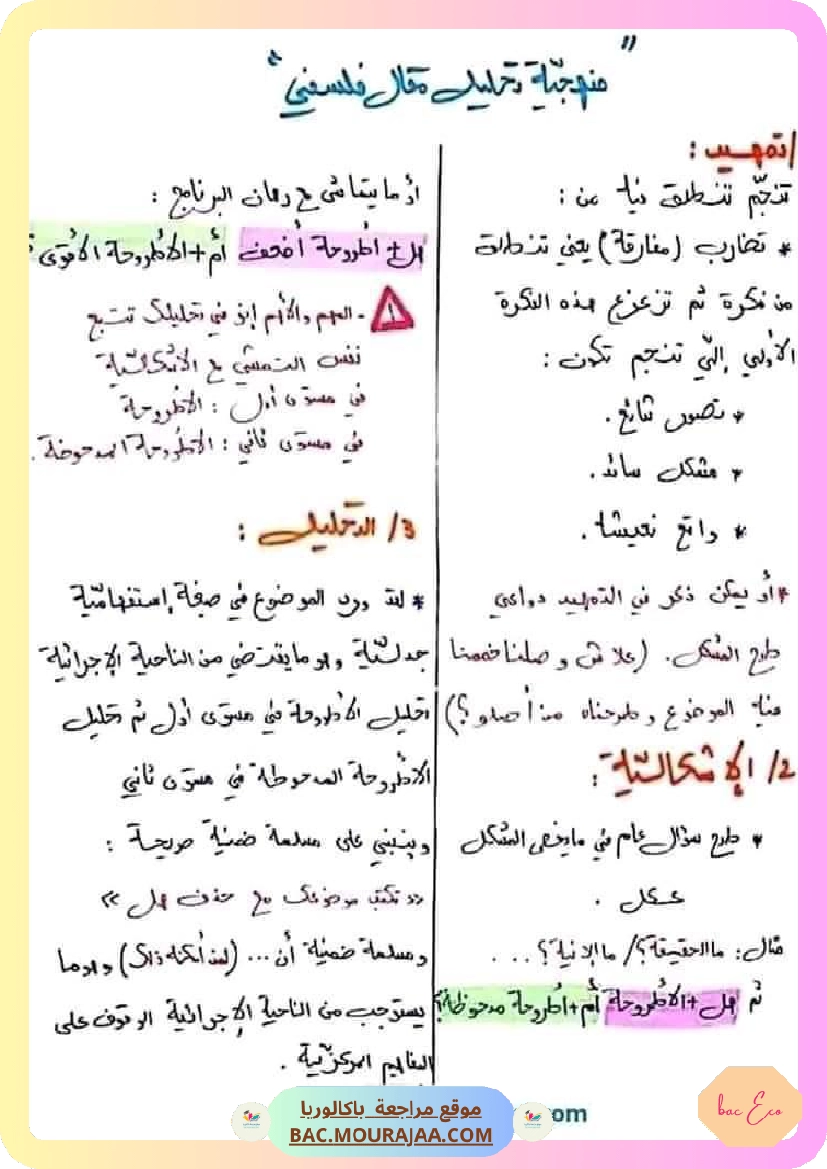 " منهجيّة تحليل مقال فلسفي "
1/ تمهيد :
تنجّم تنطلق فيه من :
* تضارب (مفارقة) يعني تنطلق
من فكرة ثم تزعزع هذه الفكرة
الأولى إلّي تنجم تكون :
* تصور شائع .
* مشكل سائد .
* واقع نعيشه .
* أو يمكن ذكر في التمهيد دواعي
طرح المشكل . (علاش وصلنا خممنا
فيه الموضوع وطرحناه من أصلو ؟)
2/ الإشكاليّة :
* طرح سؤال عام في ما يخص المشكل
ككل .
مثال : ما الحقيقة ؟ / ما الإنية ؟ . . .
ثم هل + الأطروحة أم + أطروحة مدحوظة ؟
أو ما يتماشى مع رهان البرنامج :
هل + أطروحة أضعف أم + الأطروحة الأقوى ؟
! - المهم والأهم إنو في تحليلك تتبع
نفس التمشي مع الإشكاليّة
في مستوى أول : الأطروحة
في مستوى ثاني : الأطروحة المدحوضة .
3/ التحليل :
* لقد ورد الموضوع في صيغة إستفهاميّة
جدليّة وهو ما يقتضي من الناحية الإجرائيّة
تحليل الأطروحة في مستوى أول ثم تحليل
الأطروحة المدحوظة في مستوى ثاني
وينبني على مسلمة ضمنية صريحة :
<< تكتب موضوعك مع حذف هل >>
ومسلمة ضمنية أن ... ( ) وهو ما
يستوجب من الناحية الإجرائية الوقوف على
المفاهيم المركزيّة .
موقع مراجعة باكالوريا
BAC.MOURAJAA.COM
om
bac Eco